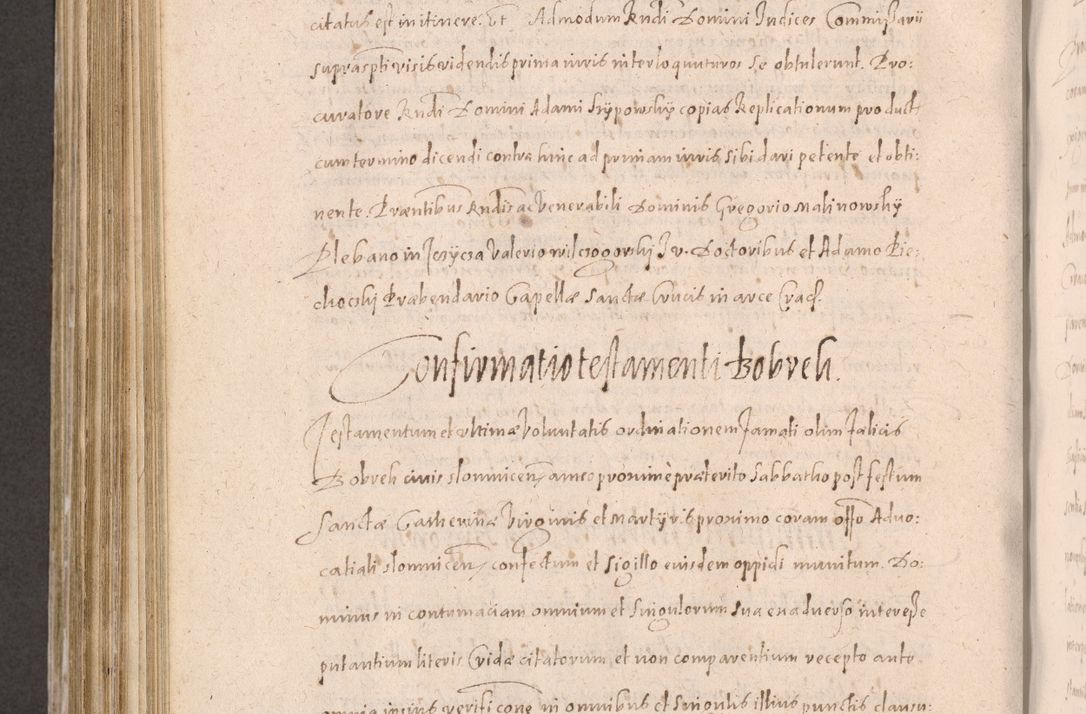 citatus est in itinere. Et Admodum Rndi Domini Judices Commissarii
suprascpti visis videndis prima iuris interloquuturos se obtulerunt. Pro:
curatore Rndi Domini Adami Szÿpowskÿ copias Replicationum product
cum termino dicendi contra hinc ad primam iuris sibi dari petente et obti:
nente. Præntibus Rndis ac Venerabili Dominis Gregorio Malinowskÿ
Plebano in Jezÿcza Valerio Wilczogorskj J v. Doctoribus et Adamo Pie:
chockj Præbendario Capellæ Sanctæ Crucis in arce Crac.
Confirmatio testamenti Bobrek.
Testamentum et ultimæ Voluntatis ordinationem famati olim fælicis
Bobrek civis slomnicen, anno proxime præterito Sabbatho post festum
Sanctæ Catherinæ Virginis et Martÿris proximo coram offo Advo:
catiali slomnicen, confectum et sigillo eiusdem oppidi munitum. Do:
minus in contumaciam omnium et singulorum sua ea adverso interesse
putantium literis Cridæ citatorum et non comparentium recepto
omnia in omnibus et singulis illius punctis clausu: